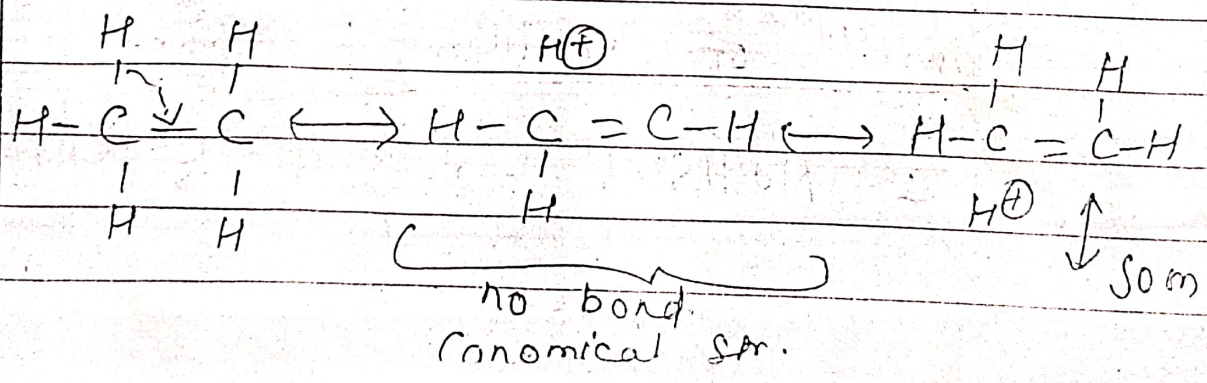 H H H⊕ H H
H - C = C ⟷ H - C = C - H ⟷ H - C = C - H
H H H H⊕
no bond
Canomical str.